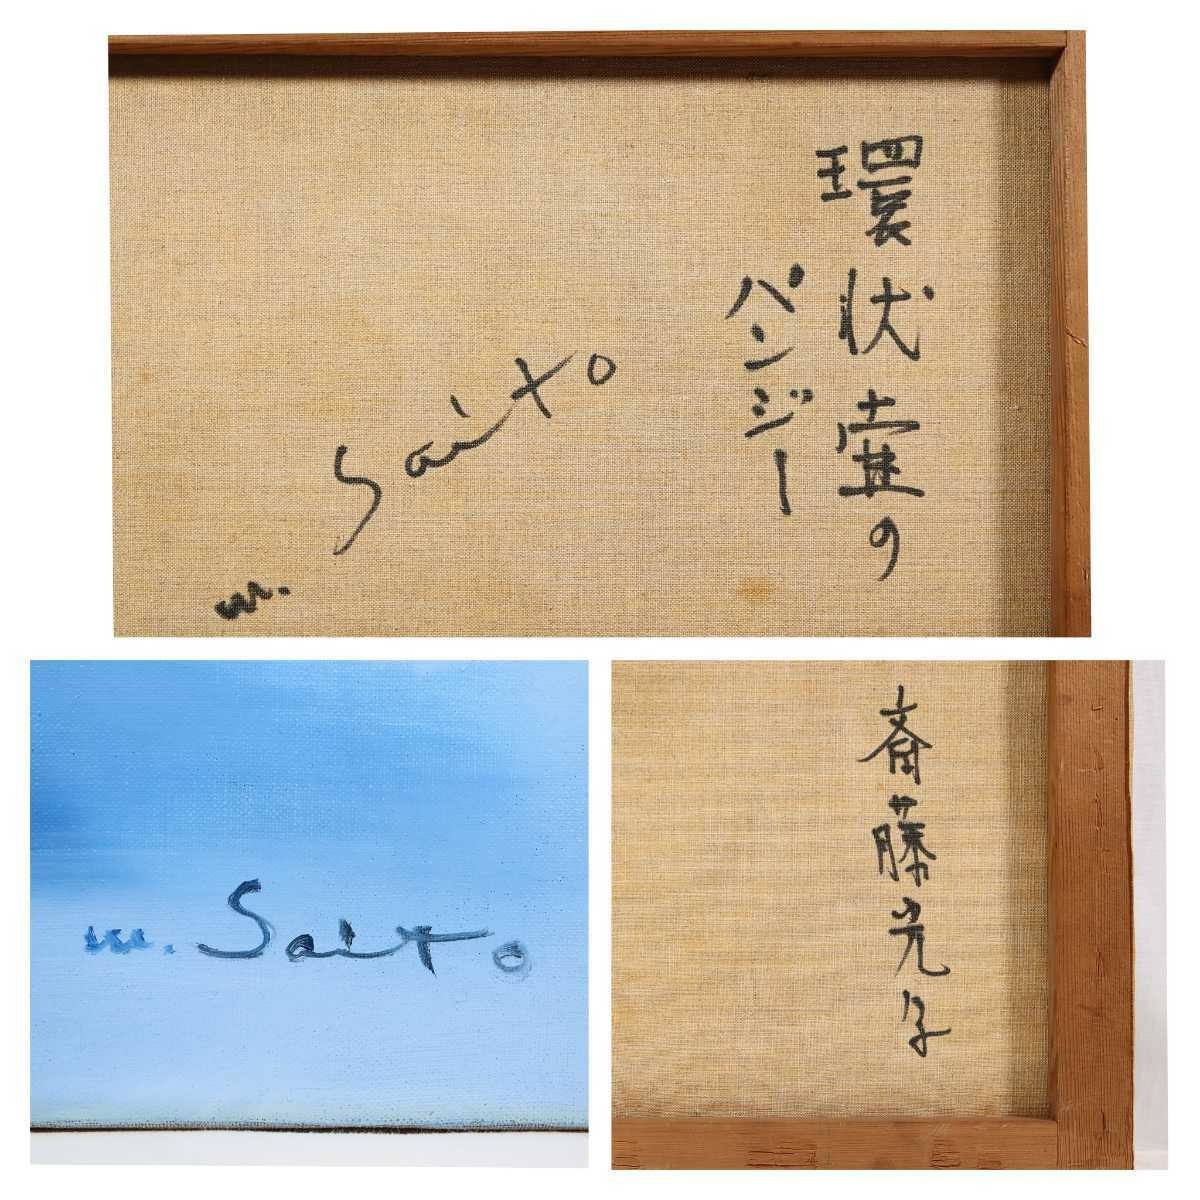 環状壷の
パンジー
m. Saito
m. Saito
斎藤光子